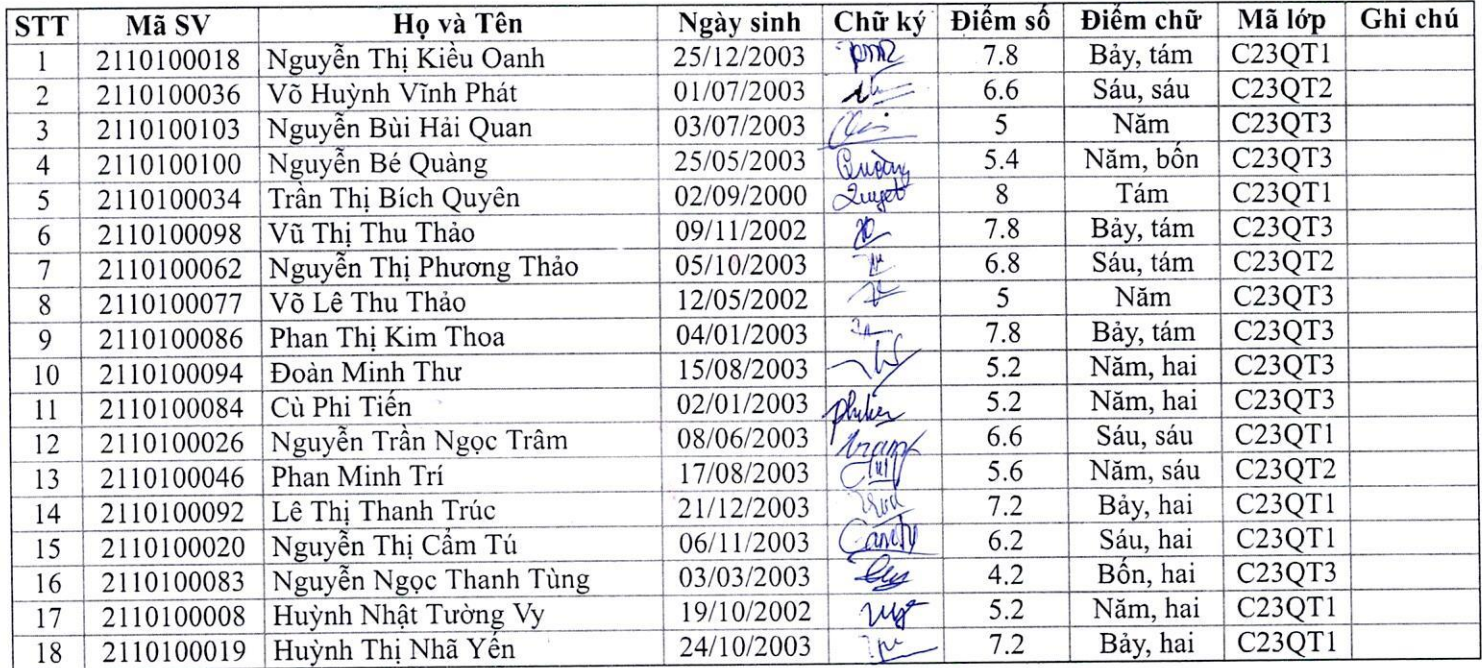 STT Mã SV Họ và Tên Ngày sinh Chữ ký Điểm số Điểm chữ Mã lớp Ghi chú
1 2110100018 Nguyễn Thị Kiều Oanh 25/12/2003 7.8 Bảy, tám C23QT1
2 2110100036 Võ Huỳnh Vĩnh Phát 01/07/2003 6.6 Sáu, sáu C23QT2
3 2110100103 Nguyễn Bùi Hải Quan 03/07/2003 5 Năm C23QT3
4 2110100100 Nguyễn Bé Quàng 25/05/2003 5.4 Năm, bốn C23QT3
5 2110100034 Trần Thị Bích Quyên 02/09/2000 8 Tám C23QT1
6 2110100098 Vũ Thị Thu Thảo 09/11/2002 7.8 Bảy, tám C23QT3
7 2110100062 Nguyễn Thị Phương Thảo 05/10/2003 6.8 Sáu, tám C23QT2
8 2110100077 Võ Lê Thu Thảo 12/05/2002 5 Năm C23QT3
9 2110100086 Phan Thị Kim Thoa 04/01/2003 7.8 Bảy, tám C23QT3
10 2110100094 Đoàn Minh Thư 15/08/2003 5.2 Năm, hai C23QT3
11 2110100084 Cù Phi Tiến 02/01/2003 5.2 Năm, hai C23QT3
12 2110100026 Nguyễn Trần Ngọc Trâm 08/06/2003 6.6 Sáu, sáu C23QT1
13 2110100046 Phan Minh Trí 17/08/2003 5.6 Năm, sáu C23QT2
14 2110100092 Lê Thị Thanh Trúc 21/12/2003 7.2 Bảy, hai C23QT1
15 2110100020 Nguyễn Thị Cẩm Tú 06/11/2003 6.2 Sáu, hai C23QT1
16 2110100083 Nguyễn Ngọc Thanh Tùng 03/03/2003 4.2 Bốn, hai C23QT3
17 2110100008 Huỳnh Nhật Tường Vy 19/10/2002 5.2 Năm, hai C23QT1
18 2110100019 Huỳnh Thị Nhã Yến 24/10/2003 7.2 Bảy, hai C23QT1